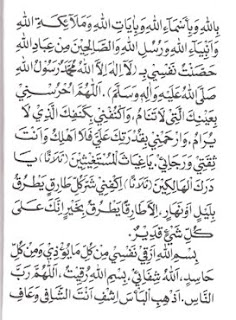 بِاللهِ وَبِأَسْمَاءِ اللهِ وَبِآيَاتِ اللهِ وَمَلَائِكَةِ اللهِ
وَأَنْبِيَاءِ اللهِ وَرُسُلِ اللهِ وَالصَّالِحِيْنَ مِنْ عِبَادِ اللهِ
حَصَّنْتُ نَفْسِيْ بِـ (لَا إِلٰهَ إِلَّا اللهُ مُحَمَّدٌ رَسُوْلُ اللهِ
صَلَّى اللهُ عَلَيْهِ وَآلِهِ وَسَلَّمَ). اَللّٰهُمَّ احْرُسْنِيْ
بِعَيْنِكَ الَّتِيْ لَا تَنَامُ، وَاكْنُفْنِيْ بِكَنَفِكَ الَّذِيْ لَا
يُرَامُ، وَارْحَمْنِيْ بِقُدْرَتِكَ عَلَيَّ فَلَا أَهْلِكُ وَأَنْتَ
ثِقَتِيْ وَرَجَائِيْ، يَا غِيَاثَ الْمُسْتَغِيْثِيْنَ (ثَلَاثًا) يَا
دَرَكَ الْهَالِكِيْنَ (ثَلَاثًا) اِكْفِنِيْ شَرَّ كُلِّ طَارِقٍ يَطْرُقُ
بِلَيْلٍ أَوْ نَهَارٍ، إِلَّا طَارِقًا يَطْرُقُ بِخَيْرٍ إِنَّكَ عَلَى
كُلِّ شَيْءٍ قَدِيْرٌ.
بِسْمِ اللهِ أَرْقِيْ نَفْسِيْ مِنْ كُلِّ مَا يُؤْذِيْ وَمِنْ كُلِّ
حَاسِدٍ، اَللهُ شِفَائِيْ، بِسْمِ اللهِ رُقِيْتُ، اَللّٰهُمَّ رَبَّ
النَّاسِ، اَذْهِبِ الْبَأْسَ اِشْفِ أَنْتَ الشَّافِيْ وَعَافِ